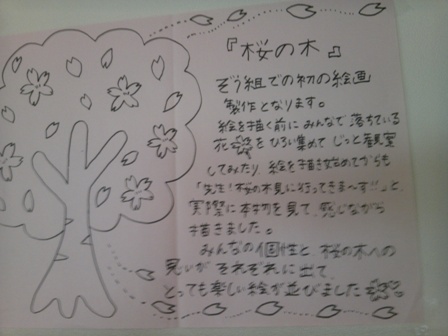 『桜の木』
ぞう組での初の絵画
製作となります。
絵を描く前にみんなで落ちている
花をひろい集めてじっと観察
してみたり、絵を描き始めてからも
「先生!桜の木見に行ってきまーす!!」と、
実際に本物を見て、感じながら
描きました。
みんなの個性と、桜の木への
思いがそれぞれに出て、
とっても楽しい絵が並びました